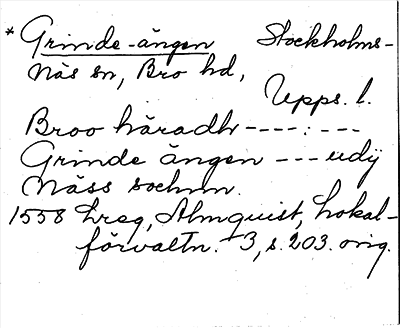 * Grinde-ängen Stockholms-
Näs sn, Bro hd,
Upps. l.
Broo häradh ----:---
Grinde ängen --- udij
Näss sochnn.
1558 Lreg, Almquist, Lokal-
förvaltn. 3, s. 203. orig.